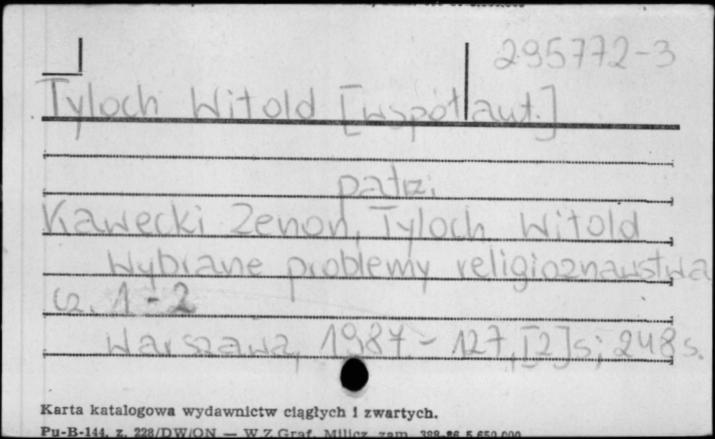 295772-3
Tyloch Witold [współaut.]
patrz.
Kawecki Zenon, Tyloch Witold
Wybrane problemy religioznawstwa
cz. 1-2
Warszawa, 1987.- 127,[2]s; 248s.
Karta katalogowa wydawnictw ciągłych i zwartych.
Pu-B-144, z. 228/DW/ON — W.Z.Graf. Milicz, zam. 398-86 5.650.000